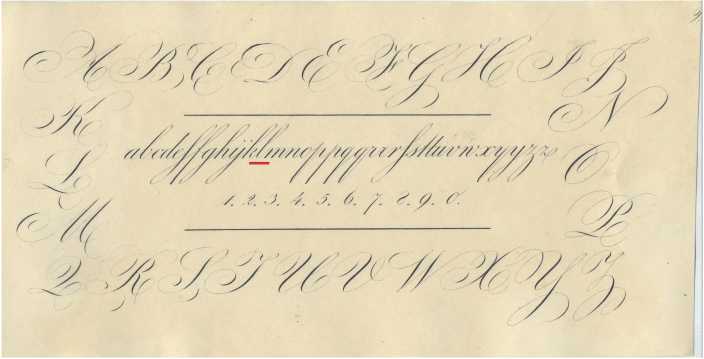 A B C D E F G H I J
K N
abcdeffghijklmnoppqqrrrsſstttuvwxyyzz
L O
1. 2. 3. 4. 5. 6. 7. 8. 9. 0.
M P
Q R S T U V W X Y Z